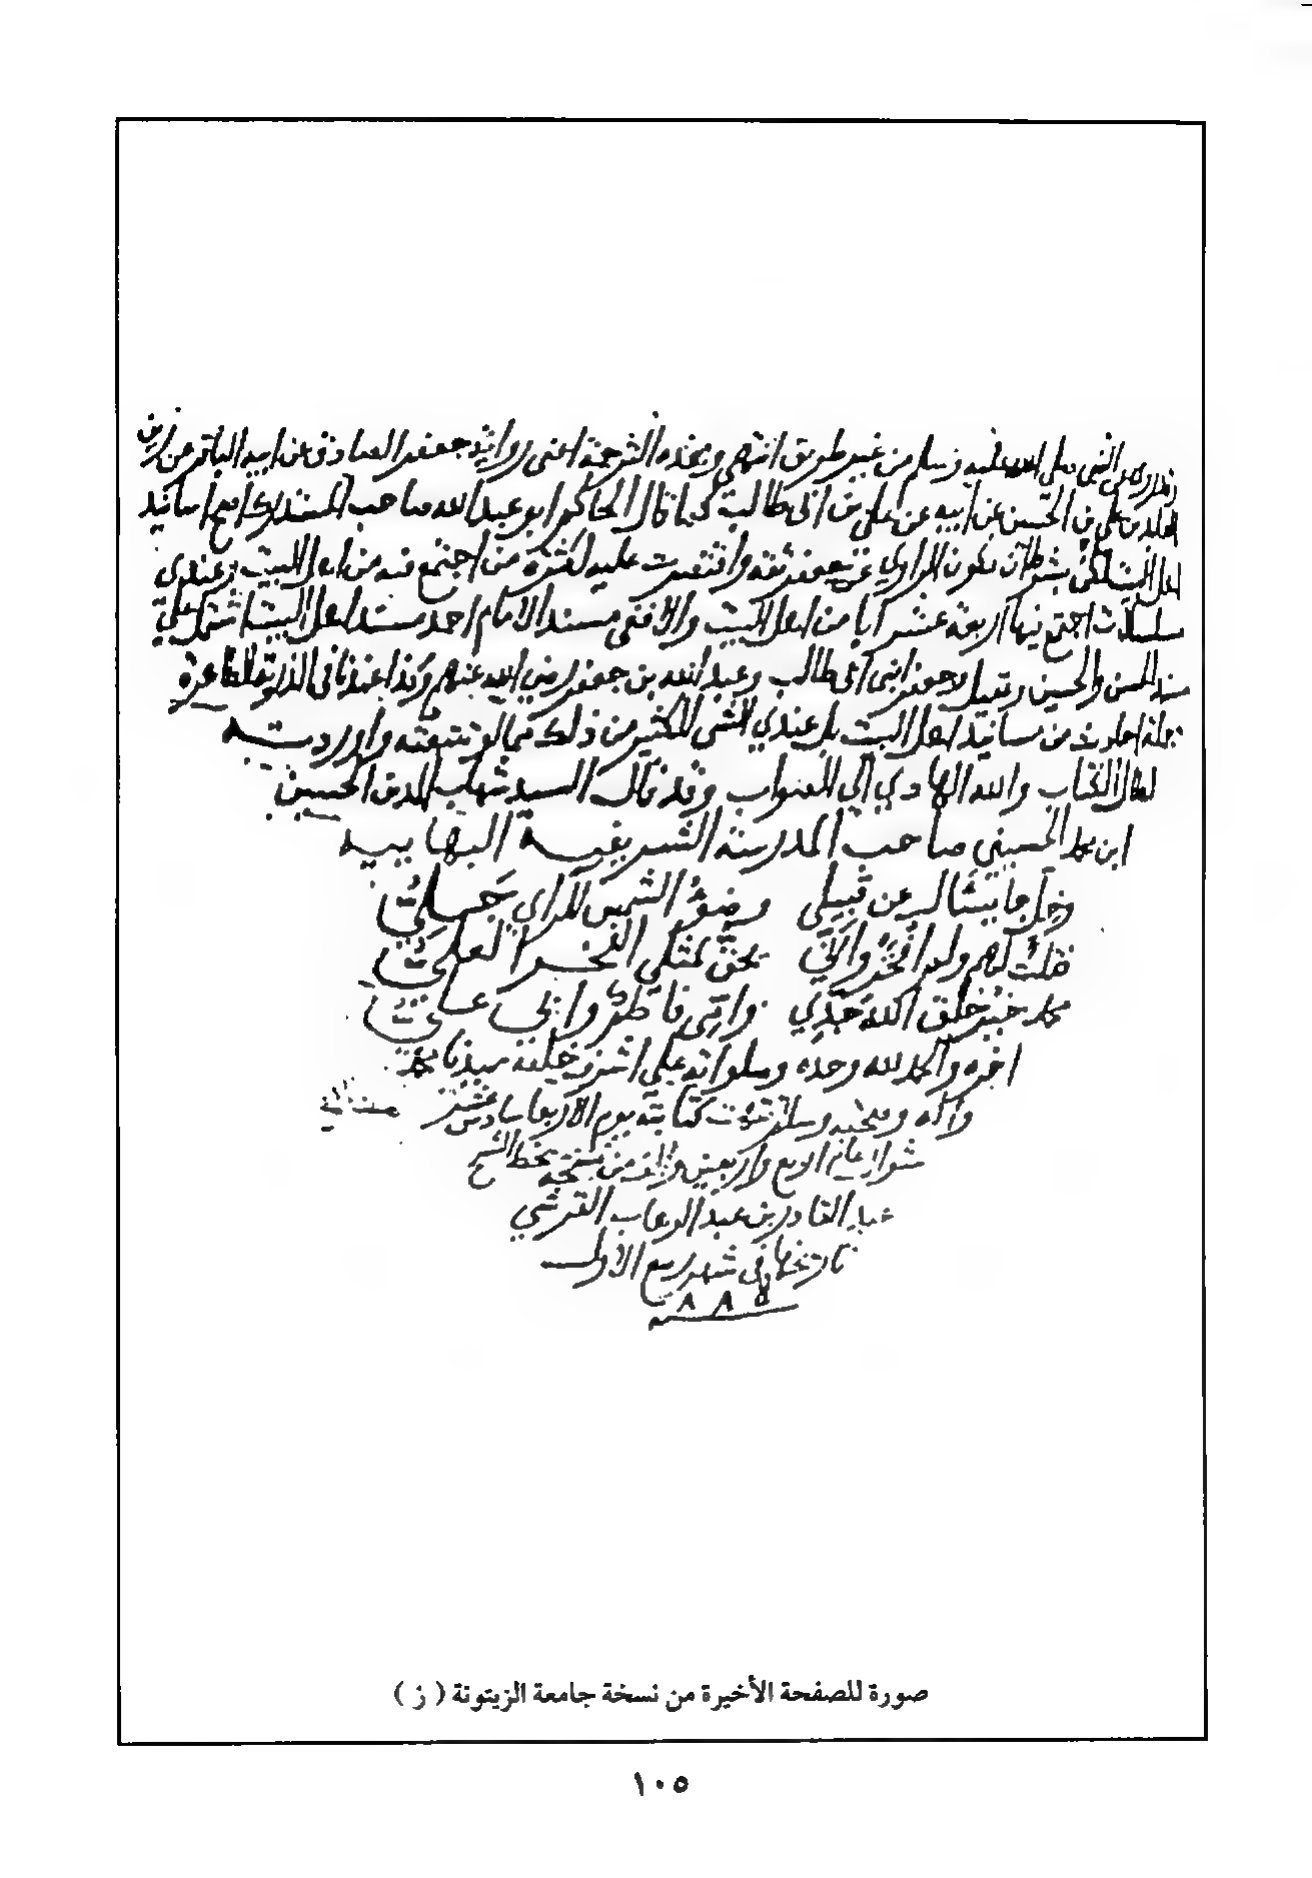 النبي صلى الله عليه وسلم من غير طريق انتهى وبهذه الترجمة اعني رواية جعفر الصادق عن ابيه الباقر عن زين
بن علي بن الحسين عن ابيه عن علي بن ابي طالب كما قال الحاكم ابو عبد الله صاحب المستدرك اصح اسانيد
اهل البيت لكن بشرط ان يكون الراوي عن جعفر ثقة واقتصرت عليه لكثرة من اجتمع فيه من اهل البيت وعندي
اجتمع فيها اربعة عشر ابا من اهل البيت والا ففي مسند الامام احمد مسند اهل البيت اشتمل على
مسند الحسن والحسين وعقيل وجعفر ابني ابي طالب وعبد الله بن جعفر رضي الله عنهم وكذا عندنا في الذرية الطاهرة
جملة احاديث من مسانيد اهل البيت بل عندي الشي الكثير من ذلك مما لو تتبعته واوردته
لطال الكتاب والله الهادي الى الصواب وقد قال السيد شهاب الدين الحسين
ابن محمد الحسيني صاحب المدرسة الشريفية البهاييه
عن قبيلي وضوء الشمس للراي جلي
فقلت لهم ولم افخر واني بحق لمثلي الفخر العلي
محمد خير خلق الله جدي وابي علي
اخره والحمد لله وحده وصلواته على اشرف خلقه سيدنا محمد
واله وصحبه وسلم تمت كتابته يوم الاربعا سادس عشر
شوال عام اربع واربعين والف من نسخة بخط الشيخ
عبد القادر بن عبد الوهاب القرشي
تاريخها في شهر ربيع الاول
٨٨٥
صورة للصفحة الأخيرة من نسخة جامعة الزيتونة ( ز )
١٠٥